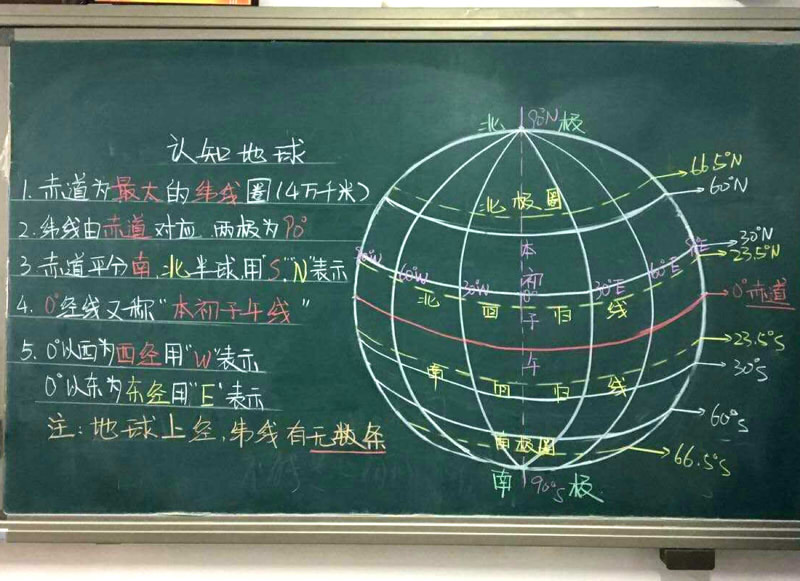 认知地球
1. 赤道为最大的纬线圈(4万千米)
2. 纬线由赤道对应 两极为90°
3. 赤道平分南.北半球,用"S","N"表示
4. 0°经线又称"本初子午线"
5. 0°以西为西经用"W"表示
0°以东为东经用"E"表示
注:地球上经,纬线有无数条
北 90°N 极
66.5°N
60°N
北极圈
30°N
23.5°N
90°W 60°W 30°W 0° 30°E 60°E 90°E
本初子午
北回归线
0°赤道
23.5°S
南回归线
30°S
60°S
南极圈
66.5°S
南 90°S 极